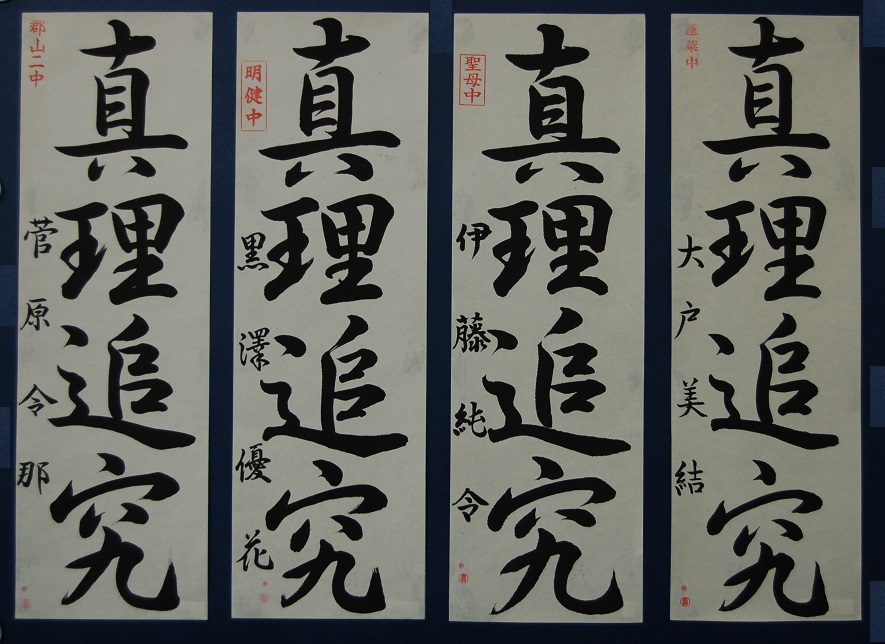 郡山二中
真理追究
菅原令那
明健中
真理追究
黒澤優花
聖母中
真理追究
伊藤純令
蓬莱中
真理追究
大戸美結